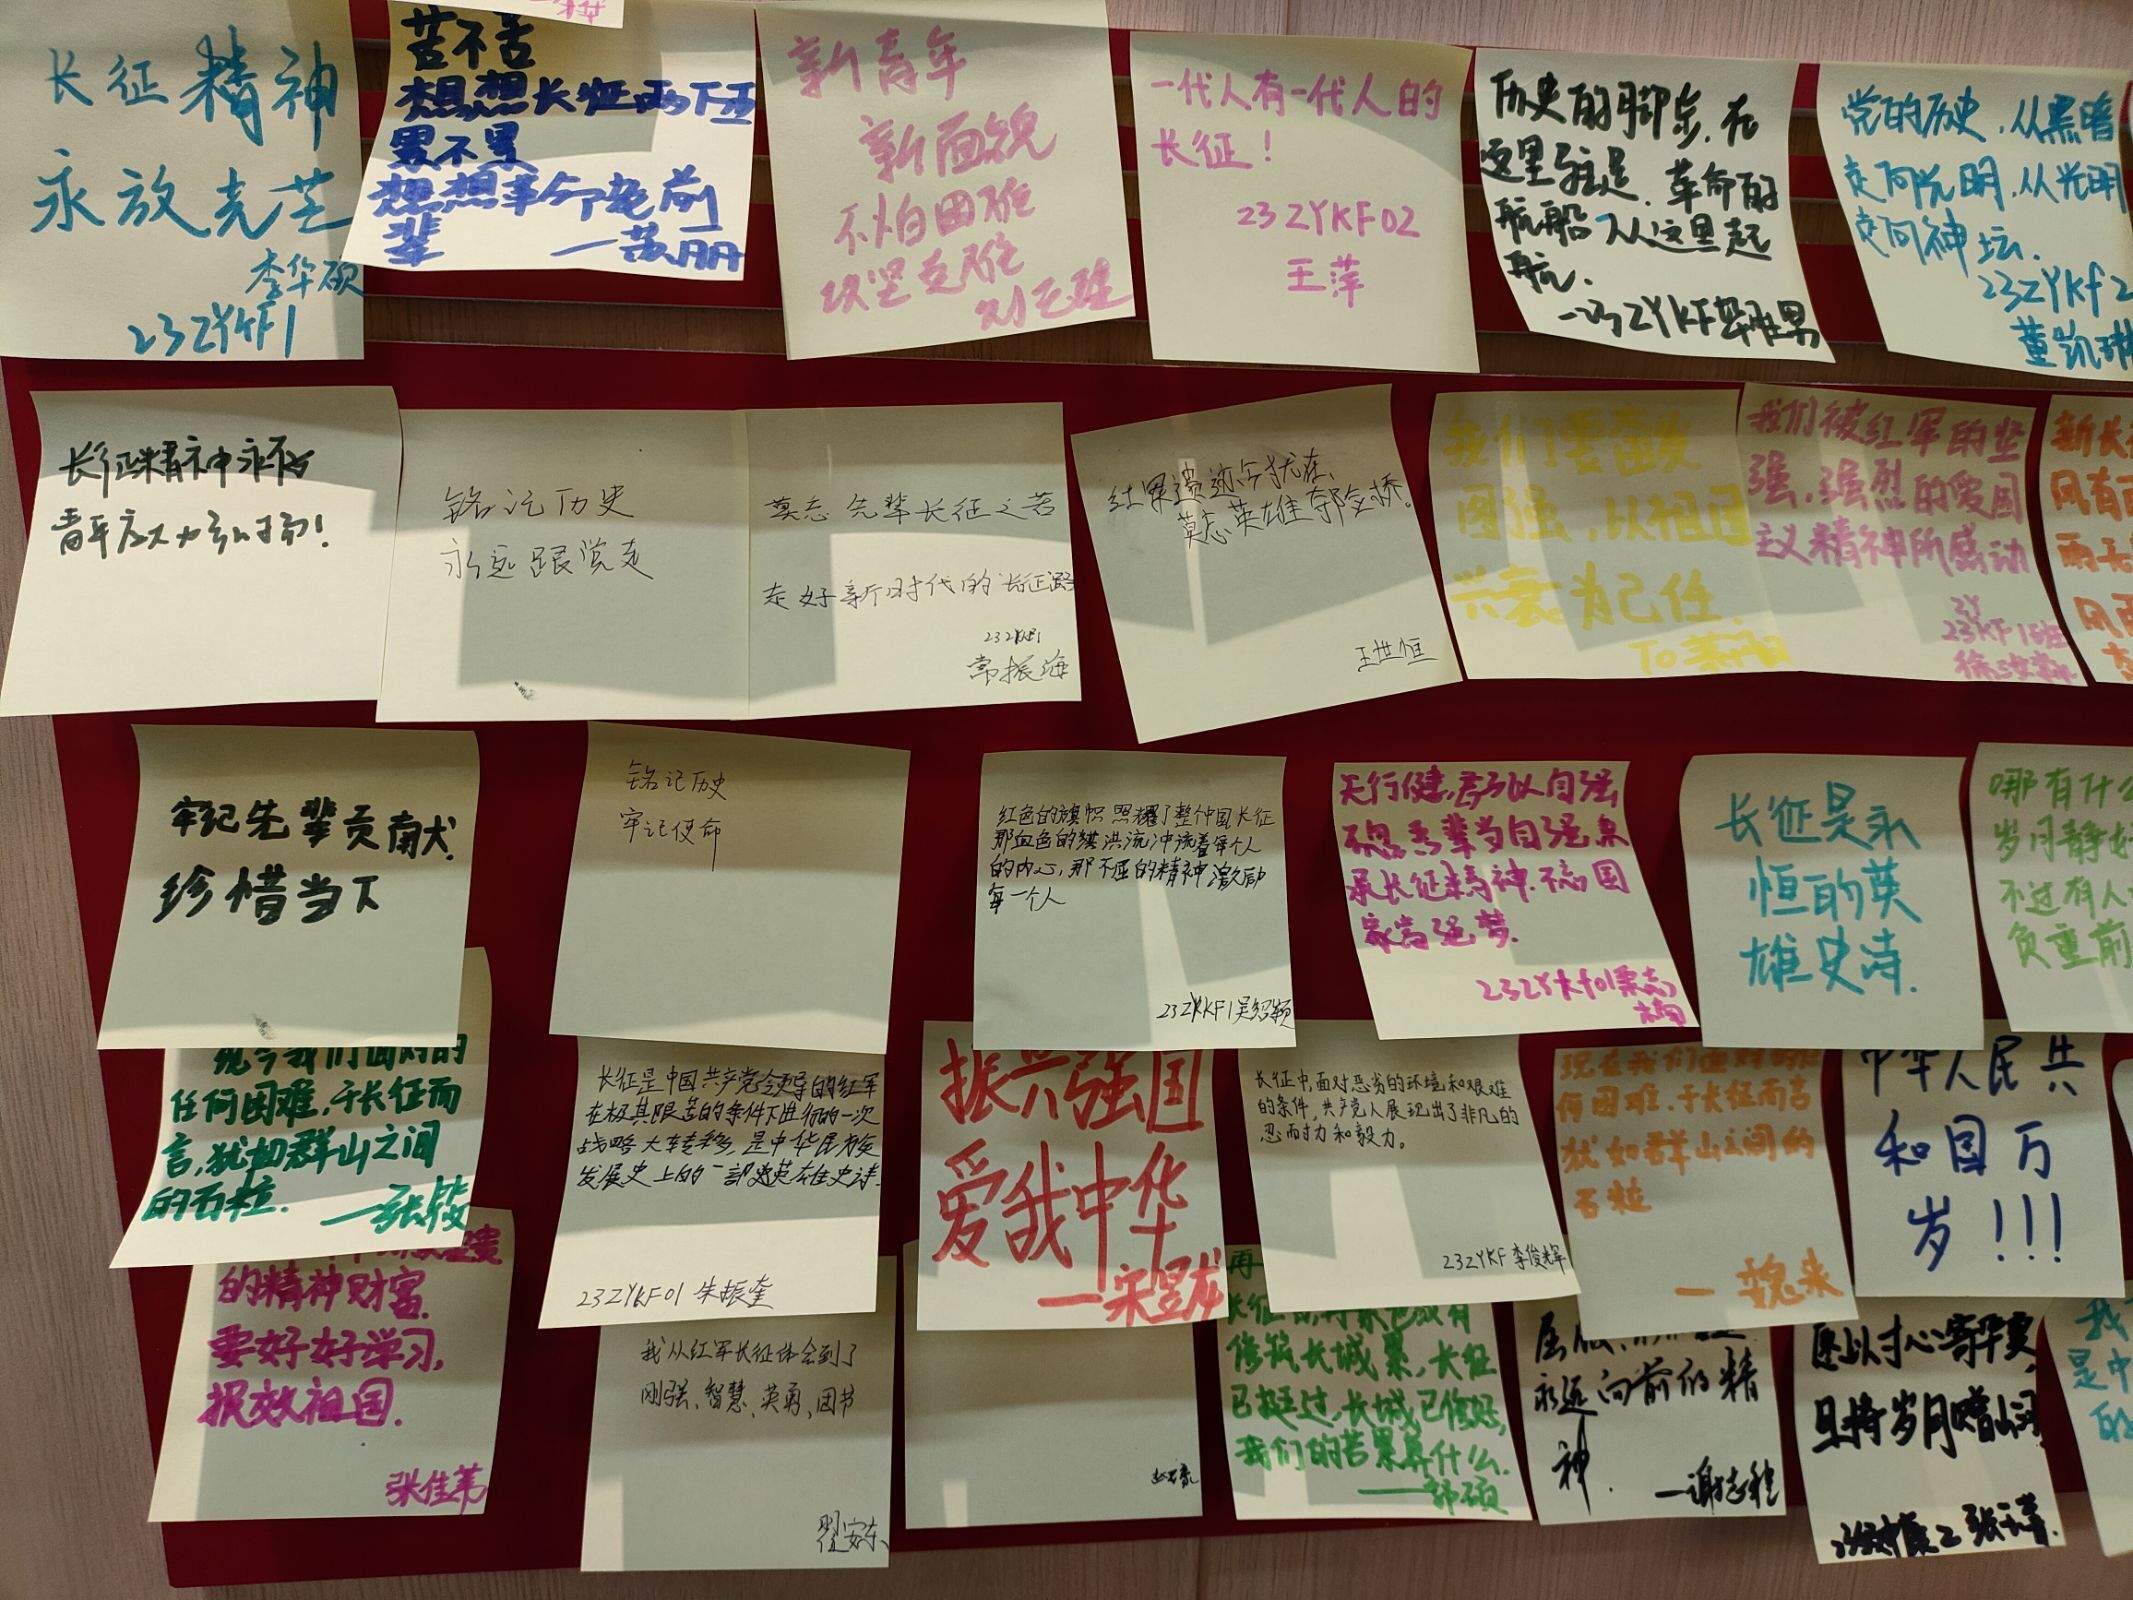 长征精神
永放光芒
李华硕
23ZYKF1
苦不苦
想想长征两万五
累不累
想想革命老前
辈
新青年
新面貌
不怕困难
攻坚克难
一代人有一代人的
长征!
23ZYKF02
王萍
历史的脚步,在
这里驻足.革命的
航船,从这里起
航.
党的历史,从黑暗
走向光明,从光明
走向神坛.
长征精神永不
青年应大力
铭记历史
永远跟党走
莫忘先辈长征之苦
走好新时代的长征路
常振海
红军遗迹今犹在,
莫忘英雄
王世恒
我们要奋发
图强,以祖国
兴衰为己任.
我们被红军的坚
强,强烈的爱国
主义精神所感动
新长
风有
牢记先辈贡献.
珍惜当下
铭记历史
牢记使命
红色的旗帜照耀了整个中国,长征
那血色的洪流冲流着每个人
的内心,那不屈的精神激励
每一个人
23ZYKF1吴绍颖
天行健,君子以自强
不息.吾辈当自强.秉
承长征精神.不忘国
家富强梦.
长征是永
恒的英
雄史诗.
哪有什么
岁月静好
不过有人
负重前
现今我们面对的
任何困难,于长征而
言,犹如群山之间
的石粒.
长征是中国共产党领导的红军
在极其限苦的条件下进行的一次
战略大转移,是中华民族
发展史上的一部英雄史诗.
23ZYKF01 朱振奎
振兴强国
爱我中华
—宋昱龙
长征中,面对恶劣的环境和艰难
的条件,共产党人展现出了非凡的
忍耐力和毅力。
23ZYKF 李俊辉
现在我们面对的任
何困难.于长征而言
犹如群山之间的
石粒
—魏来
中华人民共
和国万
岁!!!
的精神财富.
要好好学习,
报效祖国.
张佳苇
我从红军长征体会到了
刚强、智慧、英勇、团结
翟安东
修筑长城累,长征
已挺过,长城已修好,
我们的苦累算什么.
——郭硕
永远向前的精
神.
—谢志程
愿以寸心寄华夏,
且将岁月赠山河.